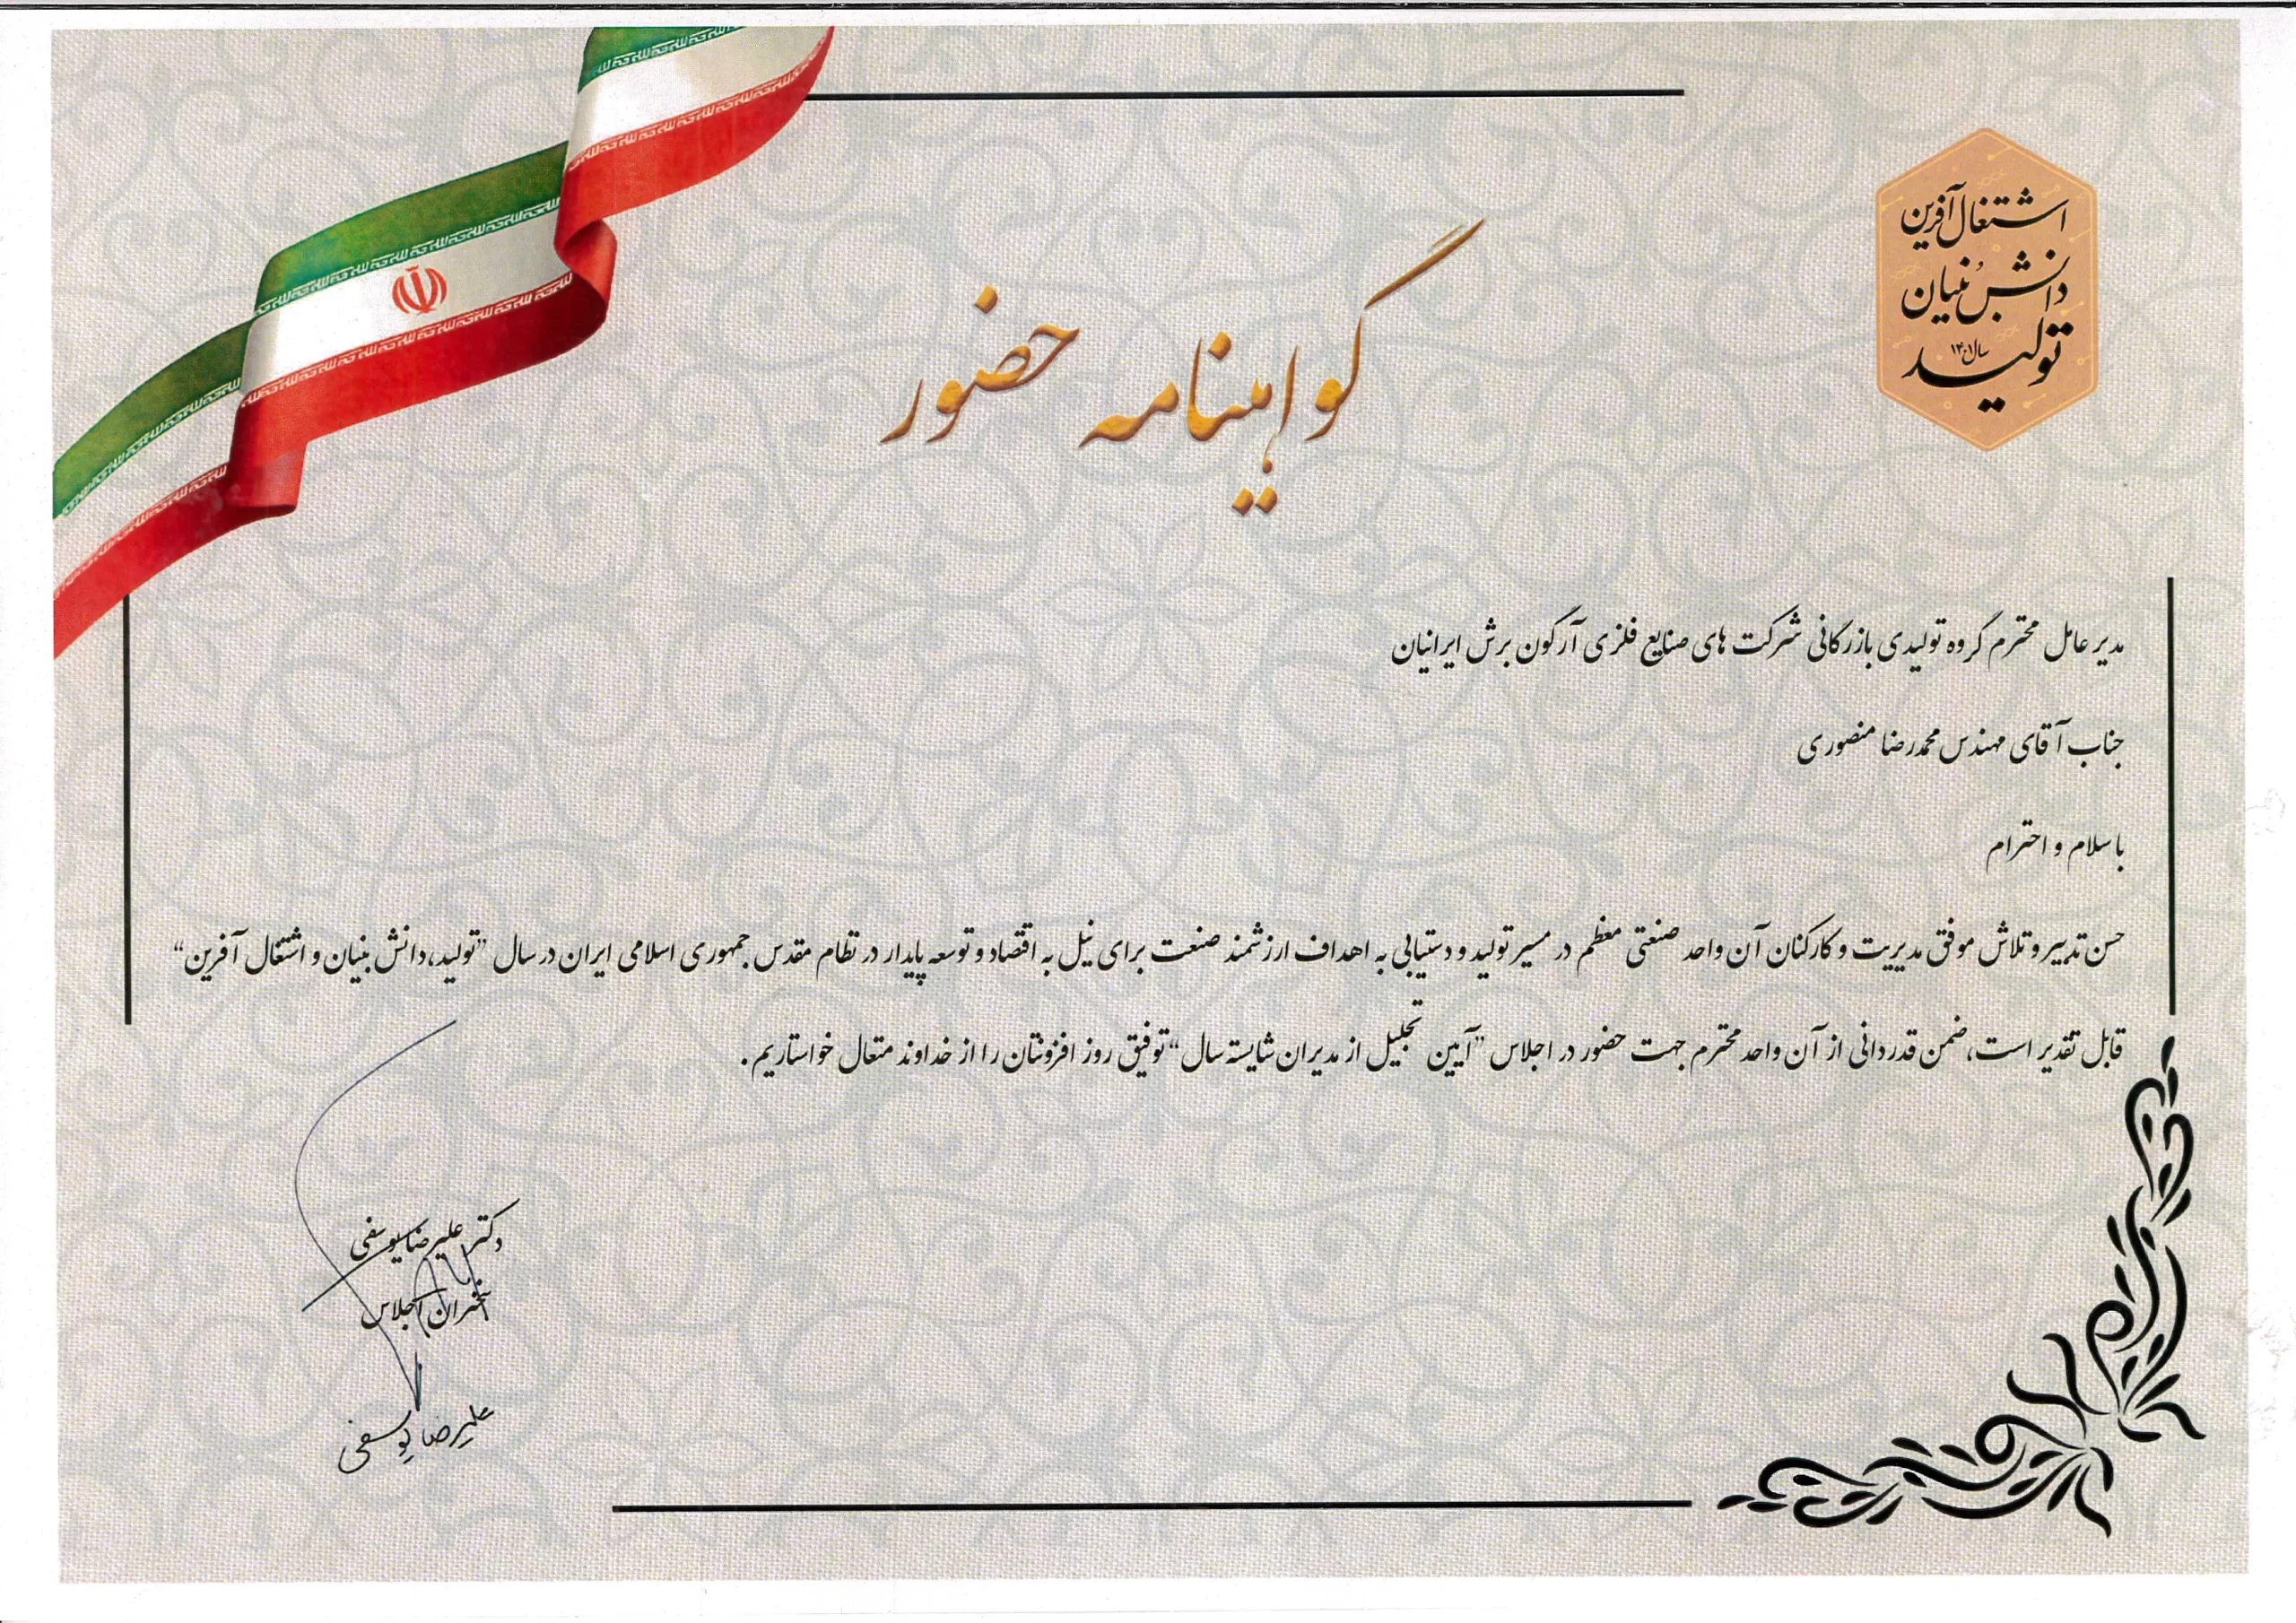 اشتغال آفرین
دانش بنیان
تولید
سال ۱۴۰۱
گواهینامه حضور
مدیر عامل محترم گروه تولیدی بازرگانی شرکت های صنایع فلزی آرگون برش ایرانیان
جناب آقای مهندس محمدرضا منصوری
با سلام و احترام
حسن تدبیر و تلاش موفق مدیریت و کارکنان آن واحد صنعتی معظم در مسیر تولید و دستیابی به اهداف ارزشمند صنعت برای نیل به اقتصاد و توسعه پایدار در نظام مقدس جمهوری اسلامی ایران در سال "تولید، دانش بنیان و اشتغال آفرین"
قابل تقدیر است، ضمن قدردانی از آن واحد محترم جهت حضور در اجلاس "آیین تجلیل از مدیران شایسته سال" توفیق روز افزونتان را از خداوند متعال خواستاریم.
دکتر علیرضا یوسفی
سخنران اجلاس
علیرضا یوسفی